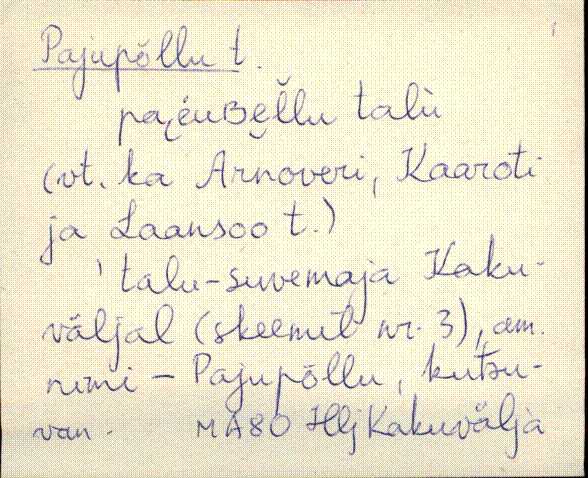 Pajupõllu t.
pai̯éuʙe̮l̆lu talù
(vt. ka Arnoveri, Kaaroti
ja Laansoo t.)
talu-suvemaja Kaku-
väljal (skeemil nr. 3), am.
nimi – Pajupõllu, kutsu-
van.   MA80 Hlj Kakuvälja